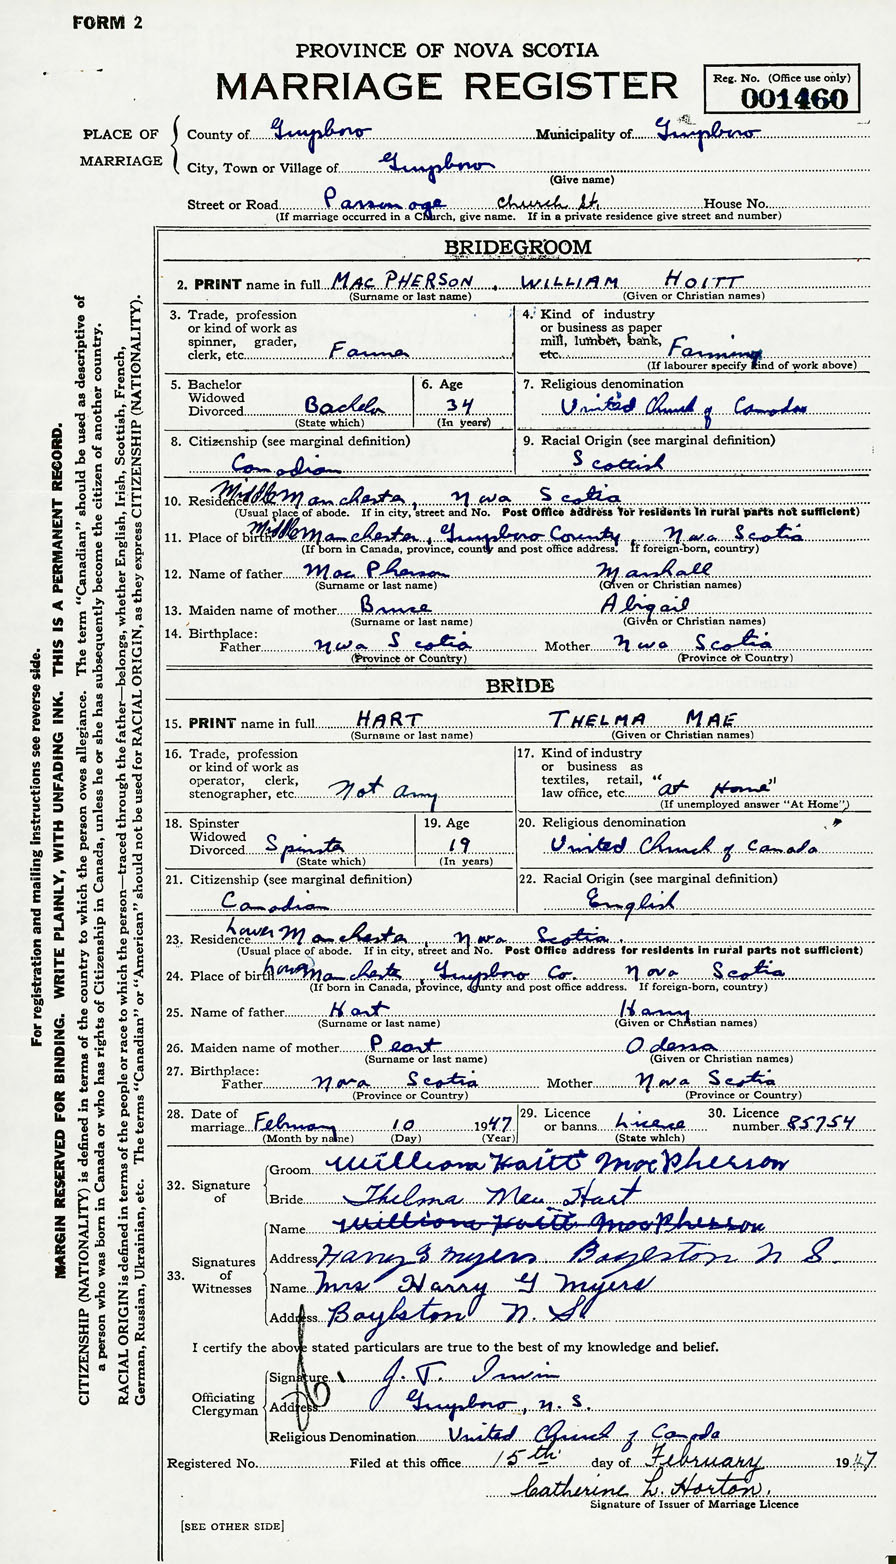 FORM 2
PROVINCE OF NOVA SCOTIA
MARRIAGE REGISTER
Reg. No. (Office use only)
001460
PLACE OF MARRIAGE
County of Guysboro Municipality of Guysboro
City, Town or Village of Guysboro
(Give name)
Street or Road Parsonage Church St. House No.
(If marriage occurred in a Church, give name. If in a private residence give street and number)
BRIDEGROOM
2. PRINT name in full MACPHERSON, WILLIAM HOITT
(Surname or last name) (Given or Christian names)
3. Trade, profession or kind of work as spinner, grader, clerk, etc. Farmer
4. Kind of industry or business as paper mill, lumber, bank, etc. Farming
(If labourer specify kind of work above)
5. Bachelor Widowed Divorced Bachelor
(State which)
6. Age 34
(In years)
7. Religious denomination
United Church of Canada
8. Citizenship (see marginal definition)
Canadian
9. Racial Origin (see marginal definition)
Scottish
10. Residence Middle Manchester, Nova Scotia
(Usual place of abode. If in city, street and No. Post Office address for residents in rural parts not sufficient)
11. Place of birth Middle Manchester, Guysboro County, Nova Scotia
(If born in Canada, province, county and post office address. If foreign-born, country)
12. Name of father MacPherson Marshall
(Surname or last name) (Given or Christian names)
13. Maiden name of mother Bruce Abigail
(Surname or last name) (Given or Christian names)
14. Birthplace:
Father Nova Scotia Mother Nova Scotia
(Province or Country) (Province or Country)
BRIDE
15. PRINT name in full HART THELMA MAE
(Surname or last name) (Given or Christian names)
16. Trade, profession or kind of work as operator, clerk, stenographer, etc. Not any
17. Kind of industry or business as textiles, retail, law office, etc. "At Home"
(If unemployed answer "At Home")
18. Spinster Widowed Divorced Spinster
(State which)
19. Age 19
(In years)
20. Religious denomination
United Church of Canada
21. Citizenship (see marginal definition)
Canadian
22. Racial Origin (see marginal definition)
English
23. Residence Lower Manchester, Nova Scotia.
(Usual place of abode. If in city, street and No. Post Office address for residents in rural parts not sufficient)
24. Place of birth Lower Manchester, Guysboro Co. Nova Scotia
(If born in Canada, province, county and post office address. If foreign-born, country)
25. Name of father Hart Harry
(Surname or last name) (Given or Christian names)
26. Maiden name of mother Peart Odessa
(Surname or last name) (Given or Christian names)
27. Birthplace:
Father Nova Scotia Mother Nova Scotia
(Province or Country) (Province or Country)
28. Date of marriage February 10 1947
(Month by name) (Day) (Year)
29. Licence or banns License
(State which)
30. Licence number 85754
32. Signature of
Groom William Hoitt MacPherson
Bride Thelma Mae Hart
33. Signatures of Witnesses
Name William Hoitt MacPherson
Address Harry G Myers Boylston N S.
Name Mrs Harry G Myers
Address Boylston N. S.
I certify the above stated particulars are true to the best of my knowledge and belief.
Officiating Clergyman
Signature J. T. Irwin
Address Guysboro, N. S.
Religious Denomination United Church of Canada
Registered No. Filed at this office 15th day of February 1947
Catherine L. Horton.
Signature of Issuer of Marriage Licence
[SEE OTHER SIDE]
For registration and mailing instructions see reverse side.
MARGIN RESERVED FOR BINDING. WRITE PLAINLY, WITH UNFADING INK. THIS IS A PERMANENT RECORD.
CITIZENSHIP (NATIONALITY) is defined in terms of the country to which the person owes allegiance. The term "Canadian" should be used as descriptive of
a person who was born in Canada or who has rights of Citizenship in Canada, unless he or she has subsequently become the citizen of another country.
RACIAL ORIGIN is defined in terms of the people or race to which the person—traced through the father—belongs, whether English, Irish, Scottish, French,
German, Russian, Ukrainian, etc. The terms "Canadian" or "American" should not be used for RACIAL ORIGIN, as they express CITIZENSHIP (NATIONALITY).